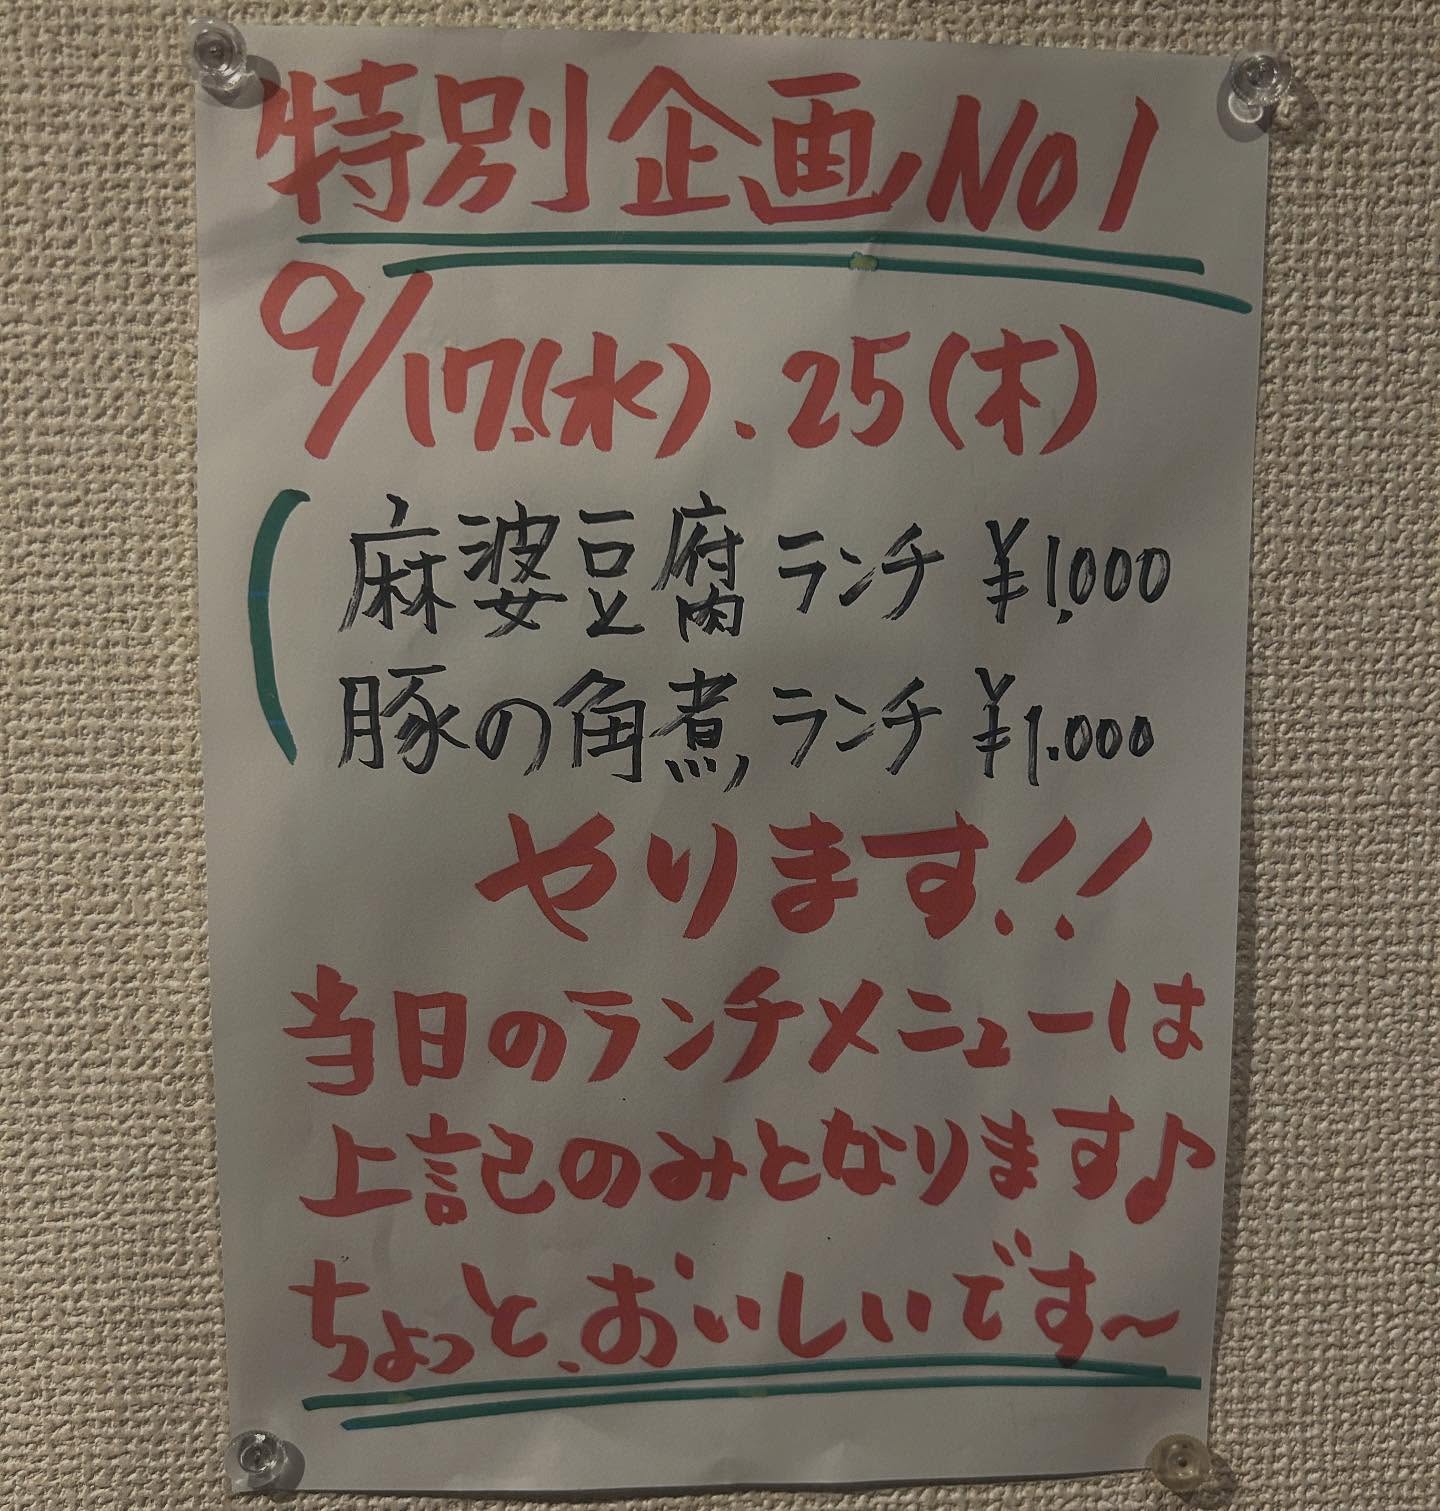 特別企画No1
9/17.(水).25(木)
麻婆豆腐ランチ ¥1,000
豚の角煮ランチ ¥1.000
やります!!
当日のランチメニューは
上記のみとなります♪
ちょっと、おいしいです～